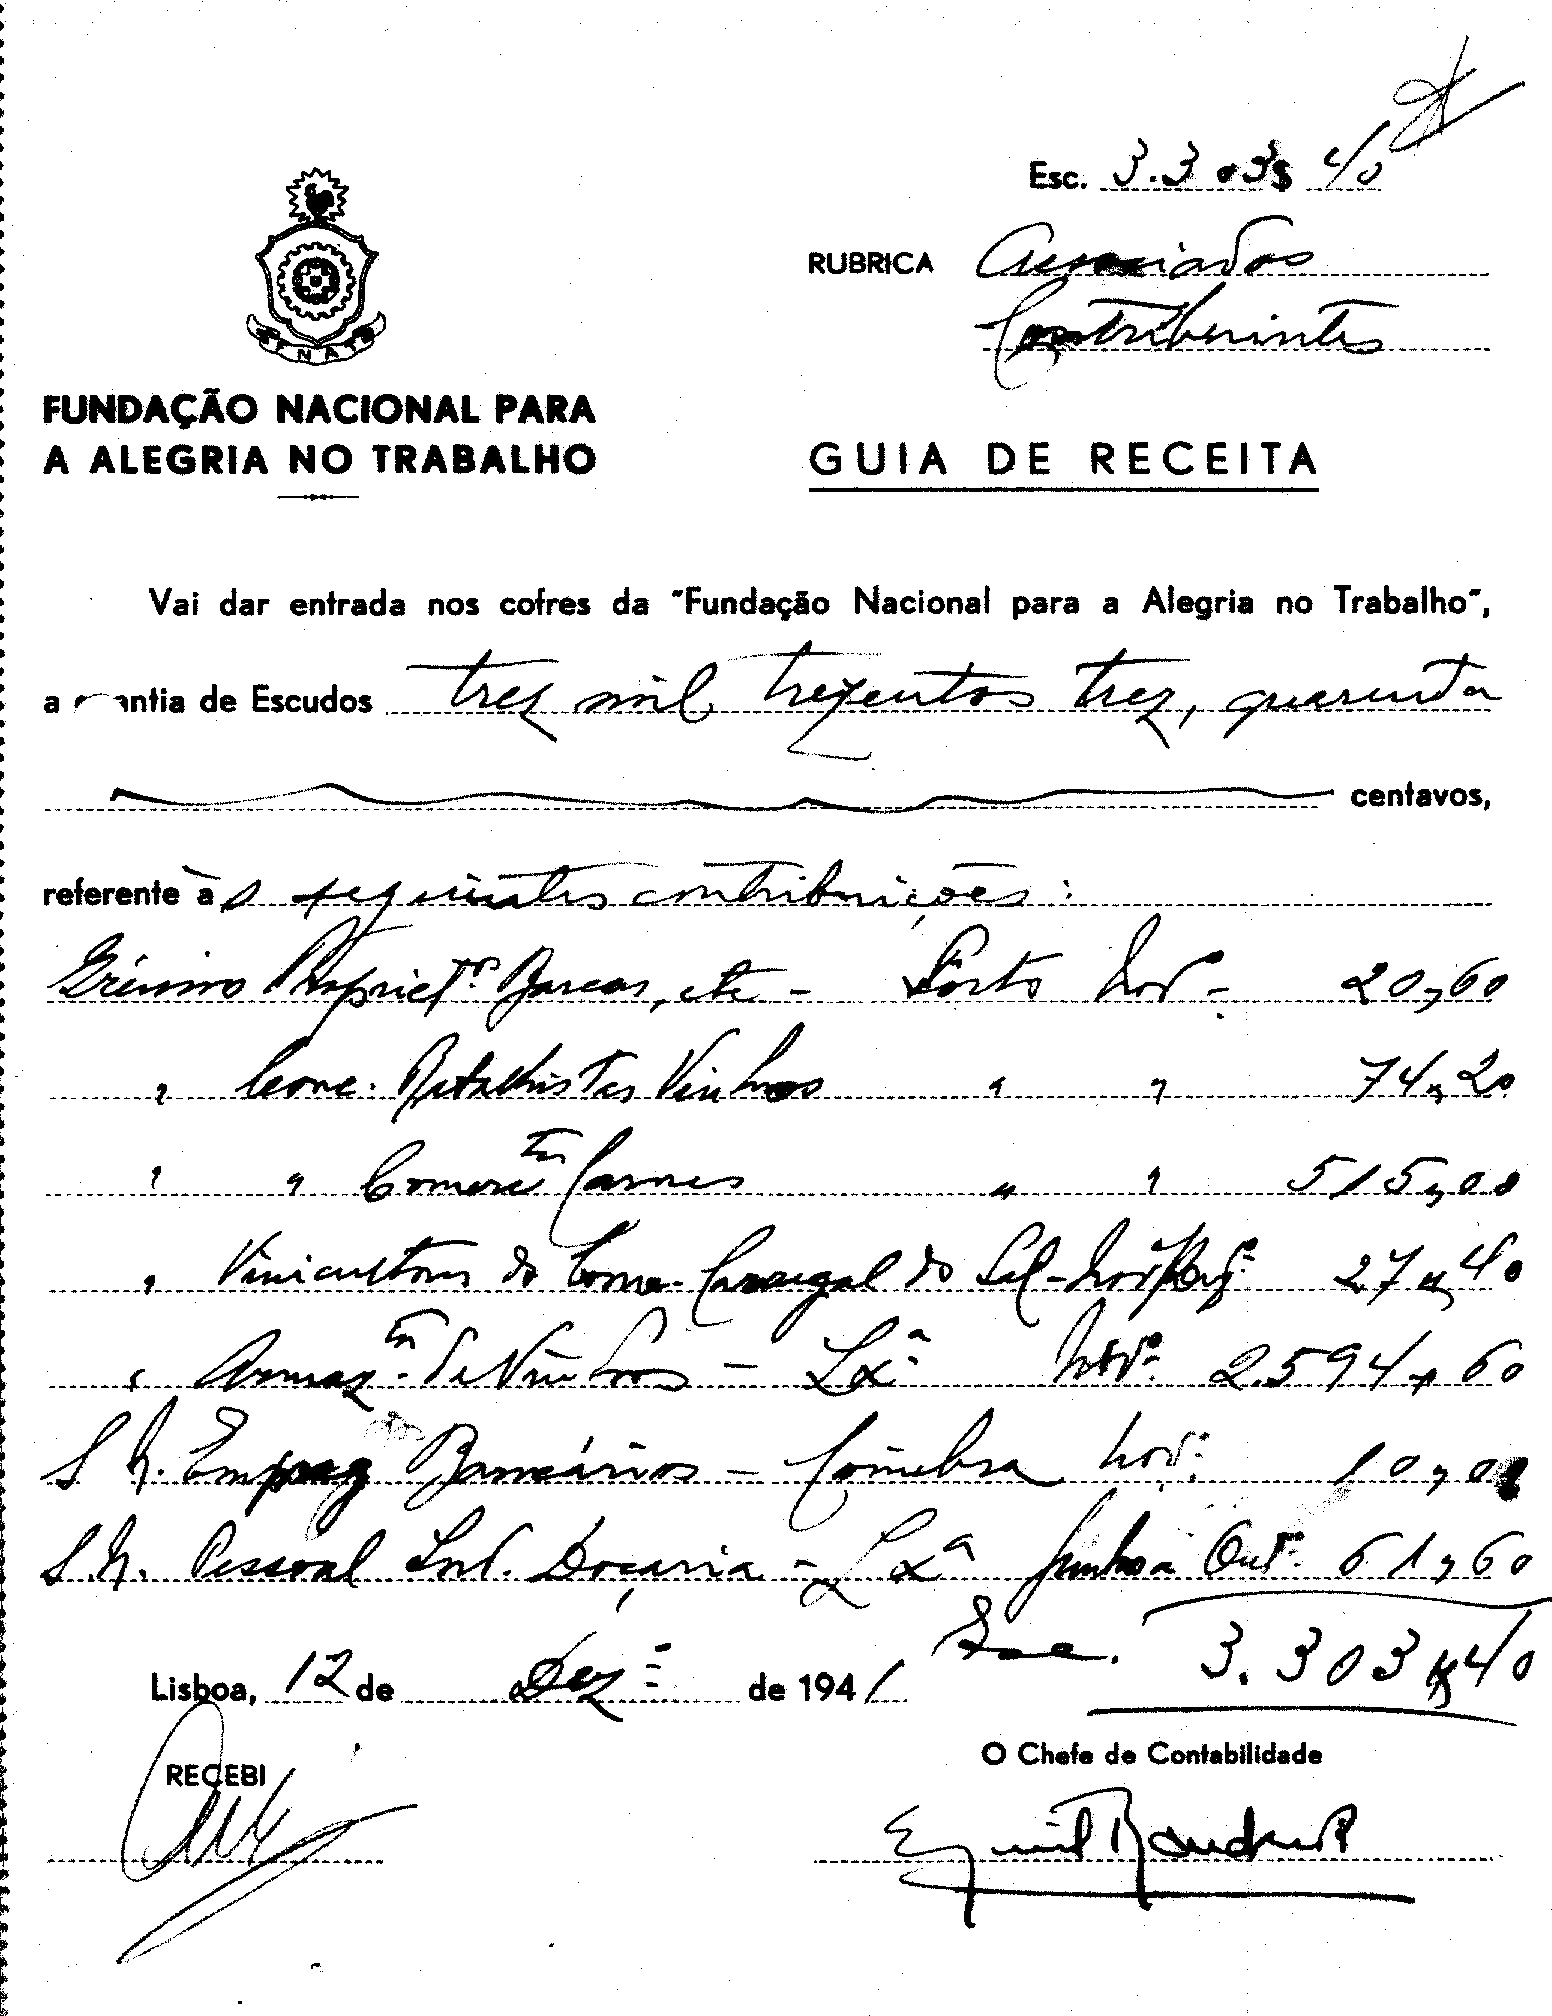 Esc. 3.303$40
RUBRICA Associados
Contribuintes
FNAT
FUNDAÇÃO NACIONAL PARA
A ALEGRIA NO TRABALHO
GUIA DE RECEITA
Vai dar entrada nos cofres da "Fundação Nacional para a Alegria no Trabalho",
a quantia de Escudos trez mil trezentos trez, quarenta
centavos,
referente às seguintes contribuições:
Grémio Propriet.ºs Barcas, etc - Porto Nov.º - 20,60
" Conc. Retalhistas Vinhos " " 74,20
" " Comerc.tes Carnes " " 515,00
" Vinicultores do Conc. Carregal do Sal - Nov.º 27$40
" Armaz.tas de Vinhos - Lx.ª Nov.º 2.594$60
S. N. Empreg Bancários - Coimbra Nov.º 10,00
S. N. Pessoal Ind. Doçaria - Lx.ª Junho a Out.º 61,60
Esc. 3.303$40
Lisboa, 12 de Dez.º de 1941
RECEBI
O Chefe de Contabilidade